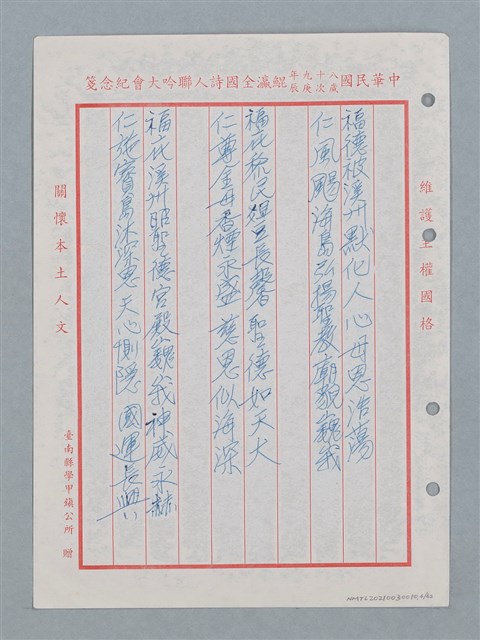 中華民國八十九年歲次庚辰鯤瀛全國詩人聯吟大會紀念箋
維護主權國格
福德被溪州默化人心母恩浩蕩
仁風颺海島弘揚聖教廟貌巍我
福庇黎民俎豆長馨聖德如天大
仁尊金母香煙永盛慈恩似海深
福庇溪州昭聖德宮殿巍我神威永赫
仁施寶島沐深恩天心惻隱國運長興
關懷本土人文
臺南縣學甲鎮公所 贈